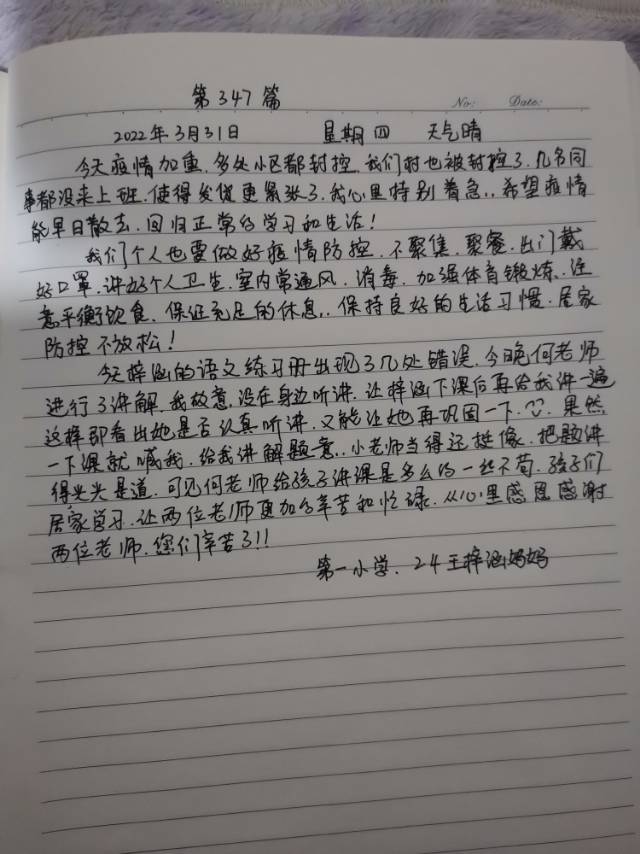 第347篇
No: Date:
2022年3月31日 星期四 天气晴
今天疫情加重,多处小区都封控,我们村也被封控了,几名同
事都没来上班,使得发馍更紧张了,我心里特别着急,希望疫情
能早日散去,回归正常的学习和生活!
我们个人也要做好疫情防控,不聚集,聚餐,出门戴
好口罩,讲好个人卫生,室内常通风,消毒,加强体育锻炼,注
意平衡饮食,保证充足的休息,保持良好的生活习惯,居家
防控不放松!
今天梓涵的语文练习册出现了几处错误,今晚何老师
进行了讲解,我故意,没在身边听讲,让梓涵下课后再给我讲一遍
这样即看出她是否认真听讲,又能让她再巩固一下,果然
一下课就喊我,给我讲解题意,小老师当得还挺像,把题讲
得头头是道,可见何老师给孩子讲课是多么的一丝不苟,孩子们
居家学习,让两位老师更加的辛苦和忙碌,从心里感恩感谢
两位老师,您们辛苦了!!
第一小学,24王梓涵妈妈